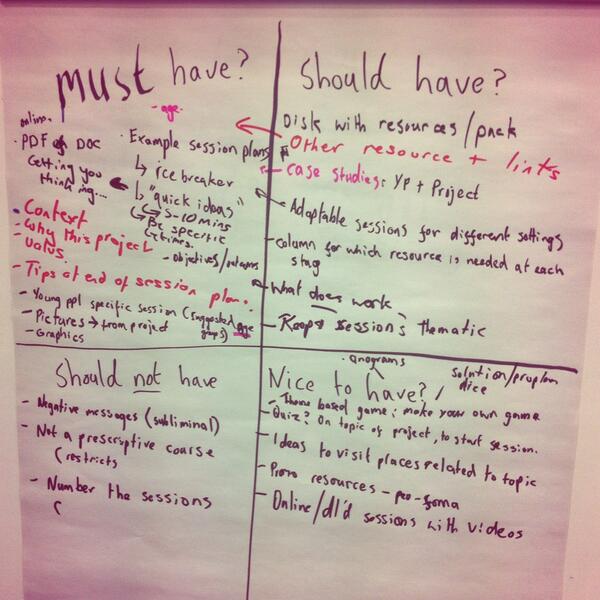 must have?
- age.
online.
· PDF of DOC
Getting you
thinking...
· Context
- Why this project
- Tips at end of session plan.
- Young ppl specific session (suggested age
groups)
- Pictures → from project
- Graphics
· Example session plans
↳ Ice breaker
↳ "quick ideas"
↳ 5-10 mins
↳ Be specific
- objectives/outcomes
Should have?
Disk with resources/pack
Other resource + links
- case studies: YP + Project
- Adaptable sessions for different settings
- column for which resource is needed at each
stag
- What does work
- Keeps sessions thematic
Should not have
- Negative messages (subliminal)
- Not a prescriptive course
(restricts
- Number the sessions
(
Nice to have?
solution/
dice
- Theme based game: make your own game
- Quiz? On topic of project, to start session.
- Ideas to visit places related to topic
- resources -
- Online/dl'd sessions with videos